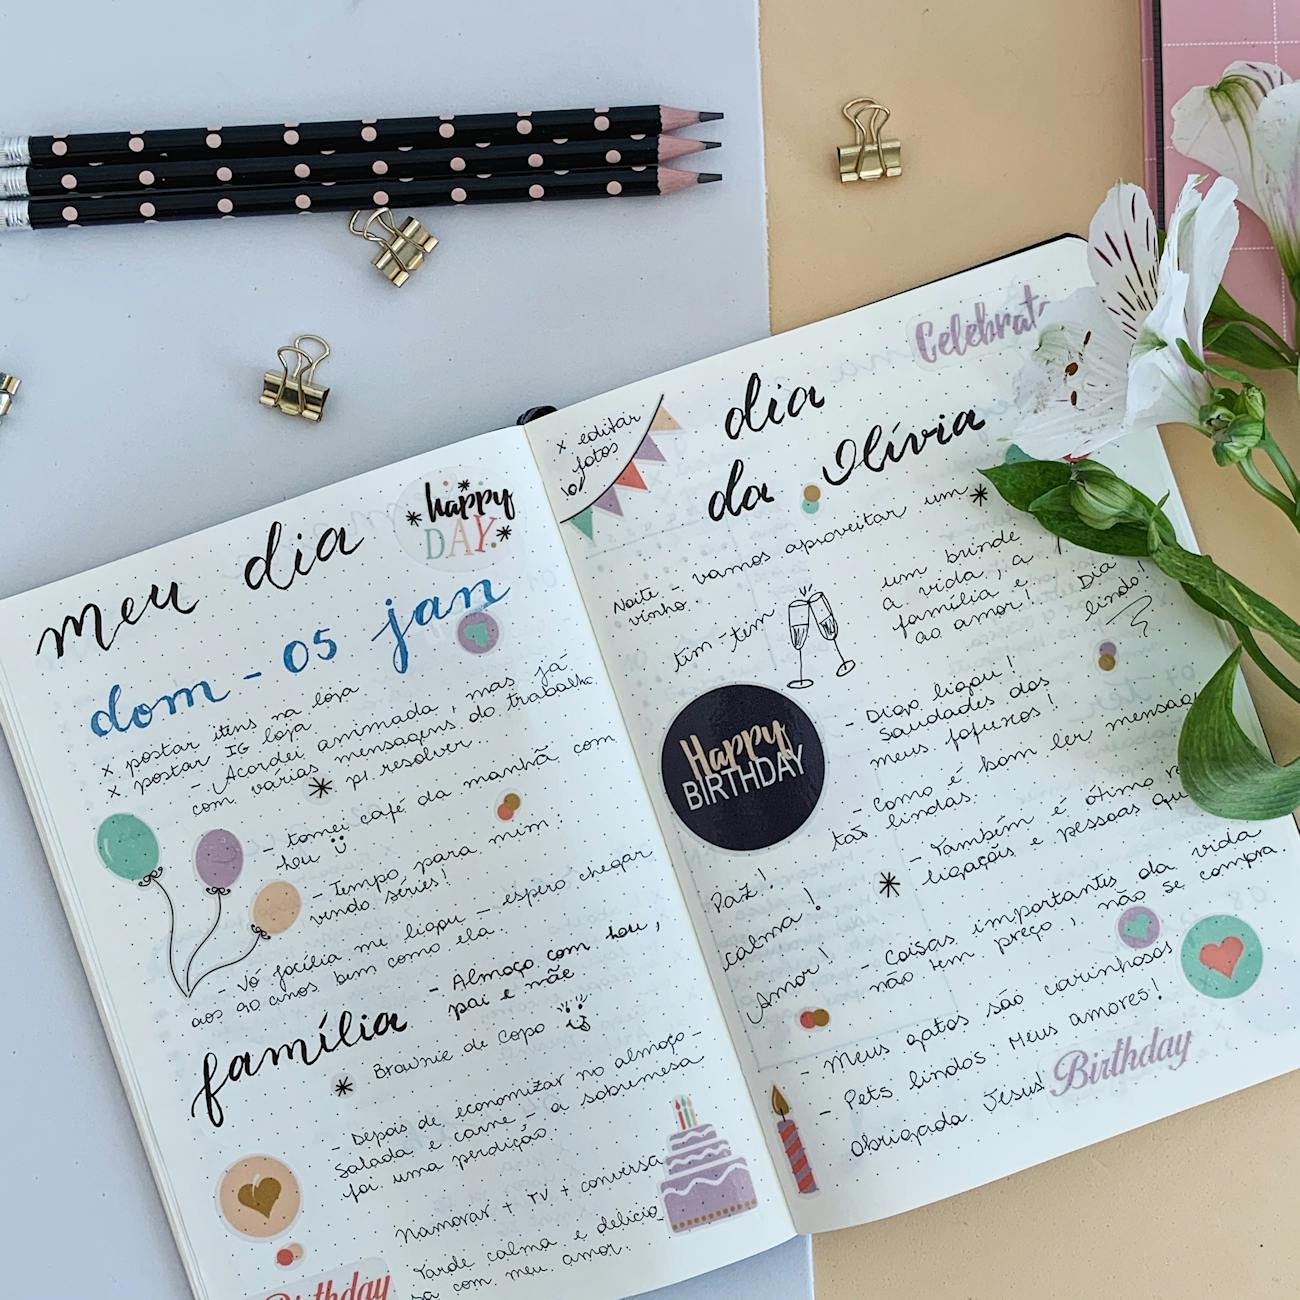 meu dia
happy
DAY.
dom - 05 jan
x postar itens na loja
x postar IG loja
- Acordei animada, mas já
com várias mensagens do trabalho
p/ resolver..
- tomei café da manhã com
- Tempo para mim:
vendo séries!
- Vó Jacília me ligou - espero chegar
aos 90 anos bem como ela.
família
- Almoço com
pai e mãe
Brownie de copo
- Depois de economizar no almoço -
salada e carne - a sobremesa
foi uma perdição.
Namorar + TV + conversa
Tarde calma e delicio
sa com meu amor.
Birthday
x editar
fotos
Celebrate
dia
da Olívia
Noite - vamos aproveitar um
vinho.
tim-tim
um brinde
a vida, a
família e
ao amor! Dia
lindo!
Happy
BIRTHDAY
- Digo ligou!
Saudades dos
meus fofuxos!
- Como é bom ler mensa
lindas.
- Também é ótimo
ligações e pessoas
Paz!
calma!
Amor!
- Coisas importantes da vida
não tem preço, não se compra.
- Meus gatos são carinhosos
- Pets lindos. Meus amores!
Obrigada Jesus!
Birthday